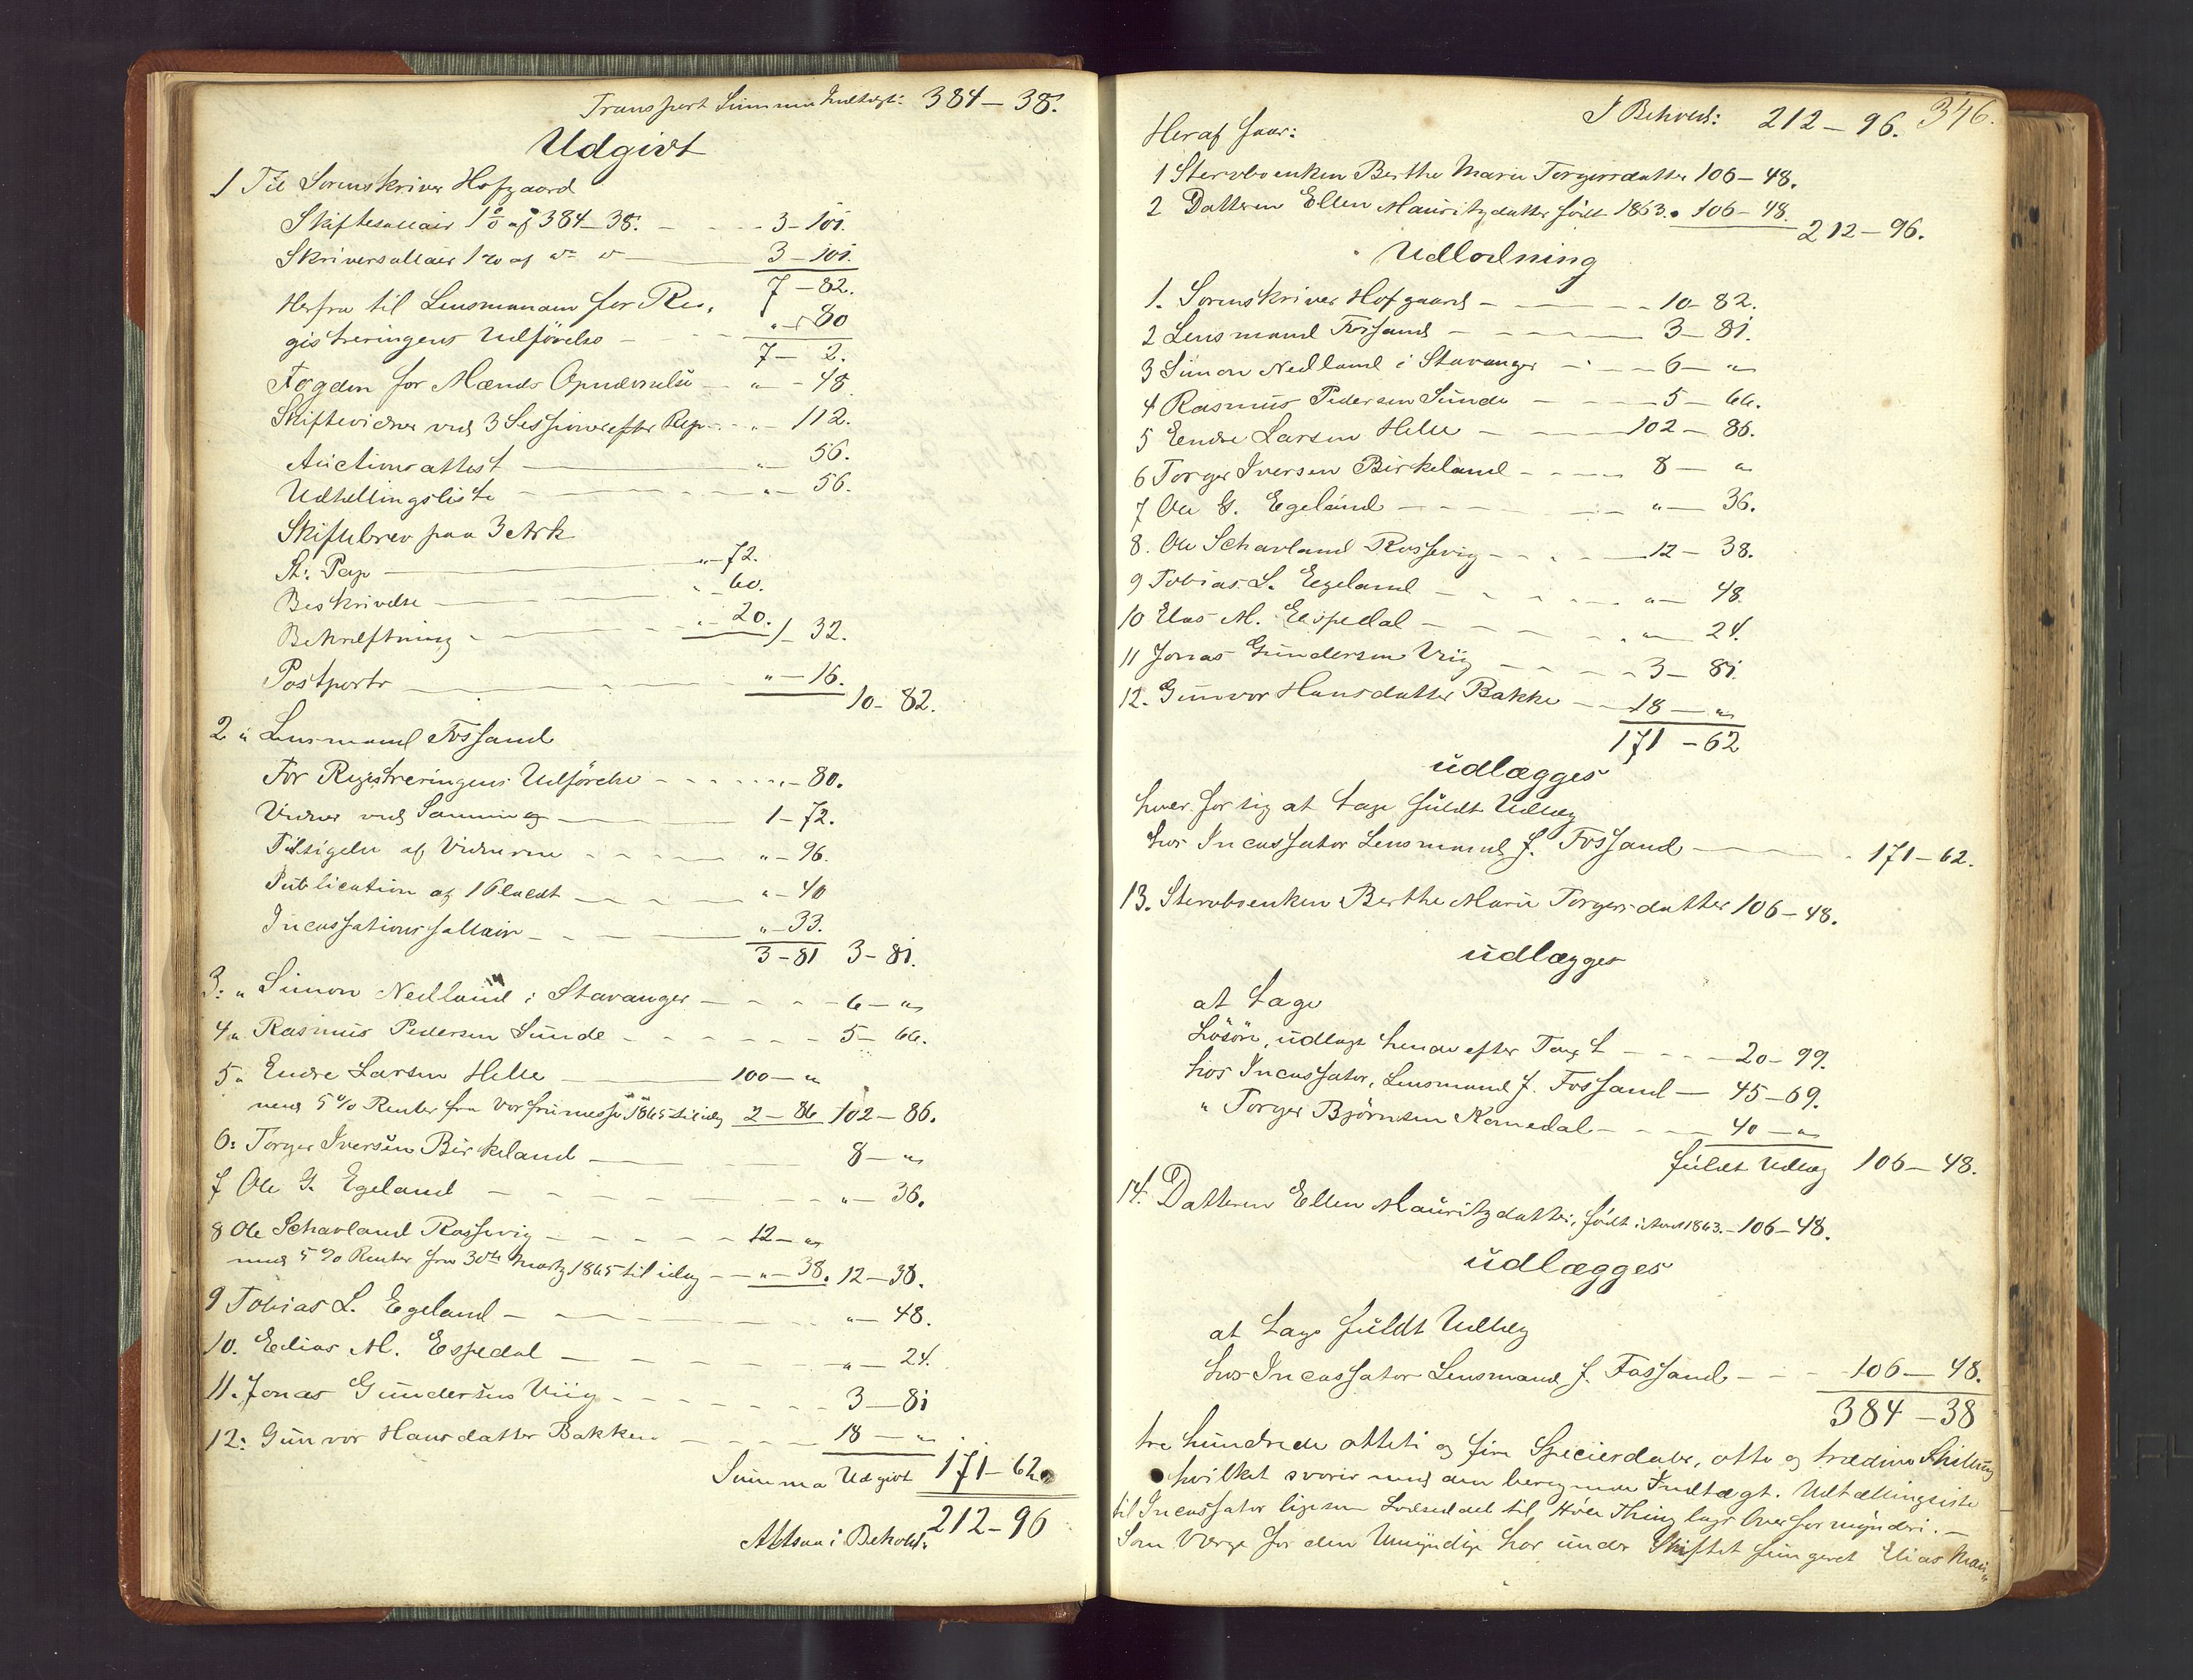 Transport Summa Indtægt: 384 – 38.
Udgivt
1 Til Sorenskriver Hofgaard
Skiftesallair 1% af 384 – 38. – 3 – 101.
Skriversallair 1% af do do – 3 – 101.
7 – 82.
Herfra til Lensmanden for Re-
gistreringens Udførelse – " – 80
7 – 2.
Fogden for Mænds Opnævnelse – " – 48
Skiftevidner ved 3 Sessioner efter Reg. – " – 112.
Auctionsattest – " – 56.
Udtellingsliste – " – 56.
Skiftebrev paa 3 Ark
St: Pap – " – 72.
Beskrivelse – " – 60.
Bekræftning – " – 20. 1 – 32.
Postporto – " – 16.
10 – 82.
2 " Lensmand Fossand
For Registreringens Udførelse – " – 80.
Vidner ved Samme – 1 – 72.
Tilsigelse af Vidnerne – " – 96.
Publication af 1 Placat – " – 40
Incassationssallair – " – 33.
3 – 81 3 – 81.
3: " Simon Nedland i Stavanger – 6 – "
4 " Rasmus Pedersen Sunde – 5 – 66.
5 " Endre Larsen Helle – 100 – "
med 5% Renter fra Vorfruemesse 1865 til idag 2 – 86 102 – 86.
6: Torger Iversen Birkeland – 8 – "
7 Ole G. Egeland – " – 36.
8 Ole Schavland Rossevig – 12 – "
med 5% Renter fra 30te Martz 1865 til idag – " – 38. 12 – 38.
9 Tobias L. Egeland – " – 48.
10. Elias M. Espedal – " – 24.
11. Jonas Gundersen Viig – 3 – 81
12: Gunvor Hansdatter Bakken – 18 – "
Summa Udgivt 171 – 62.
Altsaa i Behold: 212 – 96
346.
I Behold: 212 – 96.
Heraf faar:
1 Stervboenken Berthe Marie Torgersdatter 106 – 48.
2 Datteren Ellen Mauritzdatter født 1863. 106 – 48.
212 – 96.
Udlodning
1. Sorenskriver Hofgaard – 10 – 82.
2 Lensmand Fossand – 3 – 81.
3 Simon Nedland i Stavanger – 6 – "
4 Rasmus Pedersen Sunde – 5 – 66.
5 Endre Larsen Helle – 102 – 86.
6 Torger Iversen Birkeland – 8 – "
7 Ole G. Egeland – " – 36.
8. Ole Schavland Rossevig – 12 – 38.
9 Tobias L. Egeland – " – 48.
10 Elias M. Espedal – " – 24.
11 Jonas Gundersen Viig – 3 – 81.
12. Gunvor Hansdatter Bakke – 18 – "
171 – 62
udlægges
hver for sig at tage fuldt Udlæg
hos Incassator Lensmand J. Fossand – 171 – 62.
13. Stervboenken Berthe Marie Torgersdatter 106 – 48.
udlægges
at tage
Løsøre, udlagt hende efter Taxt – 20 – 99.
hos Incassator, Lensmand J. Fossand – 45 – 69.
" Torger Bjørnsen Komedal – 40 – "
fuldt Udlæg 106 – 48.
14. Datteren Ellen Mauritzdatter, født i 1863. – 106 – 48.
udlægges
at tage fuldt Udlæg
hos Incassator Lensmand J. Fossand – 106 – 48.
384 – 38
tre hundrede otteti og fire Speciesdaler, otte og tredive Skilling
hvilket svarer med den beregnede Indtægt. Udtællingsliste
til Incassator ligesom til Høle Thinglags Overformynderi. –
Som Verge for den Umyndige har under Skiftet fungeret Elias Mau-